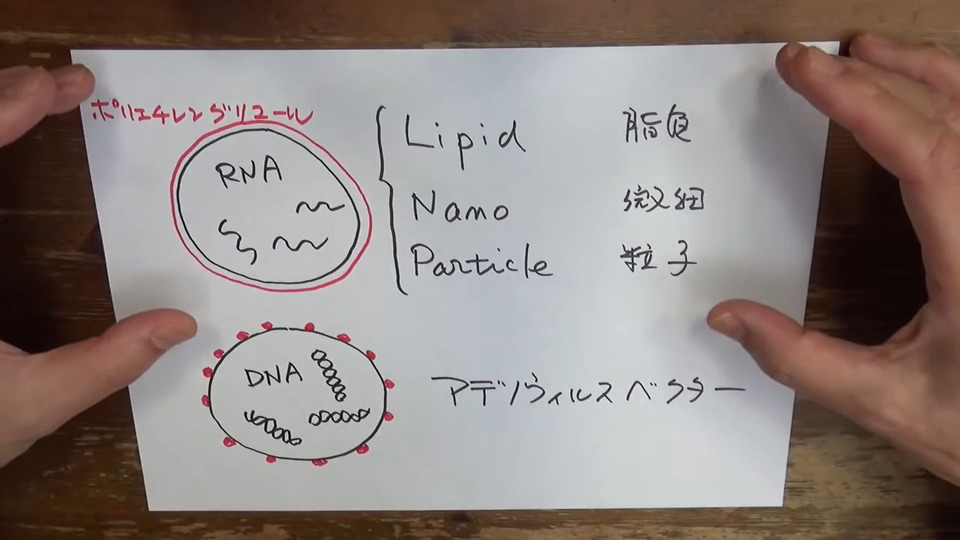 ポリエチレングリコール
RNA
Lipid 脂質
Nano 微細
Particle 粒子
DNA
アデノウィルスベクター